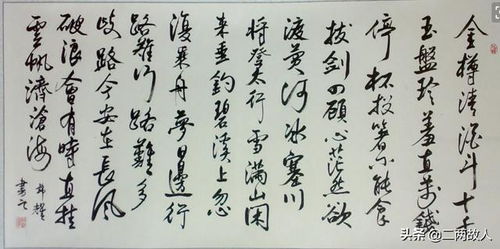 金樽清酒斗十千
玉盤珍羞直萬錢
停杯投箸不能食
拔剑四顾心茫然欲
渡黄河冰塞川
将登太行雪满山闲
来垂钓碧溪上忽
復乘舟夢日邊行
路難行路難多
歧路今安在長風
破浪會有時直挂
雲帆濟滄海
头条 @二两故人